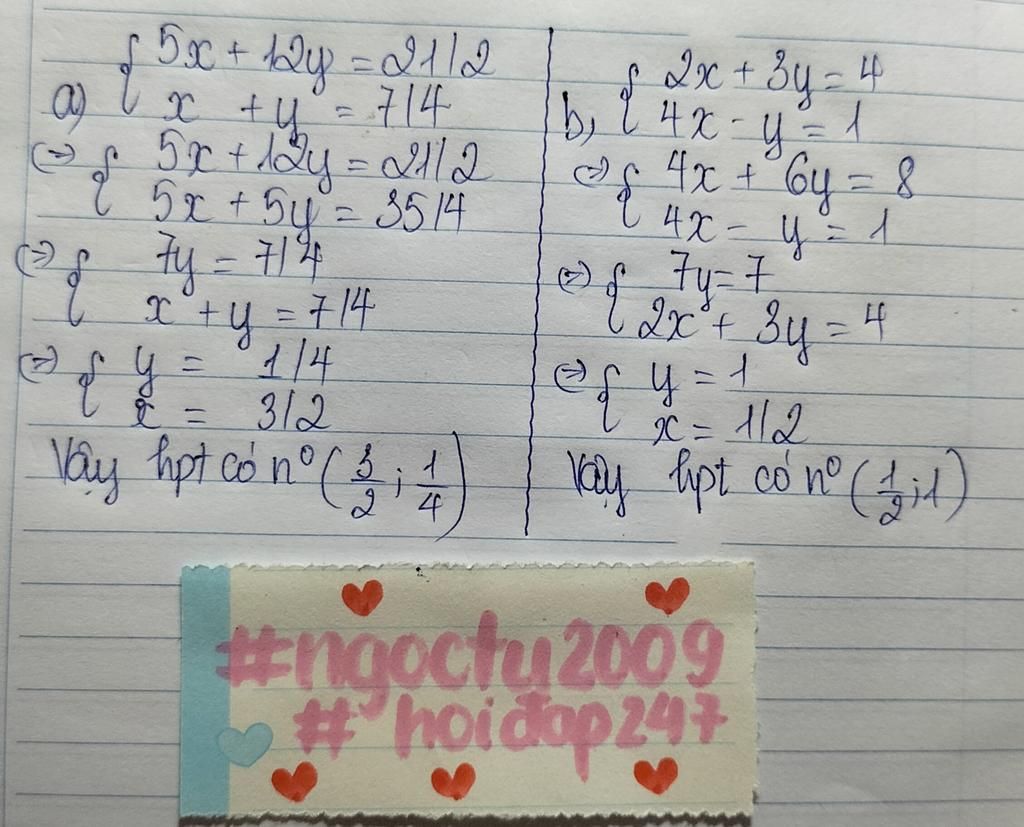 a) { 5x + 12y = 21/2
x + y = 7/4
(=) { 5x + 12y = 21/2
5x + 5y = 35/4
(=) { 7y = 7/4
x + y = 7/4
(=) { y = 1/4
x = 3/2
Vậy hpt có nº (3/2 ; 1/4)
b, { 2x + 3y = 4
4x - y = 1
(=) { 4x + 6y = 8
4x - y = 1
(=) { 7y = 7
2x + 3y = 4
(=) { y = 1
x = 1/2
Vậy hpt có nº (1/2 ; 1)
#ngoctu2009
# hoidap247